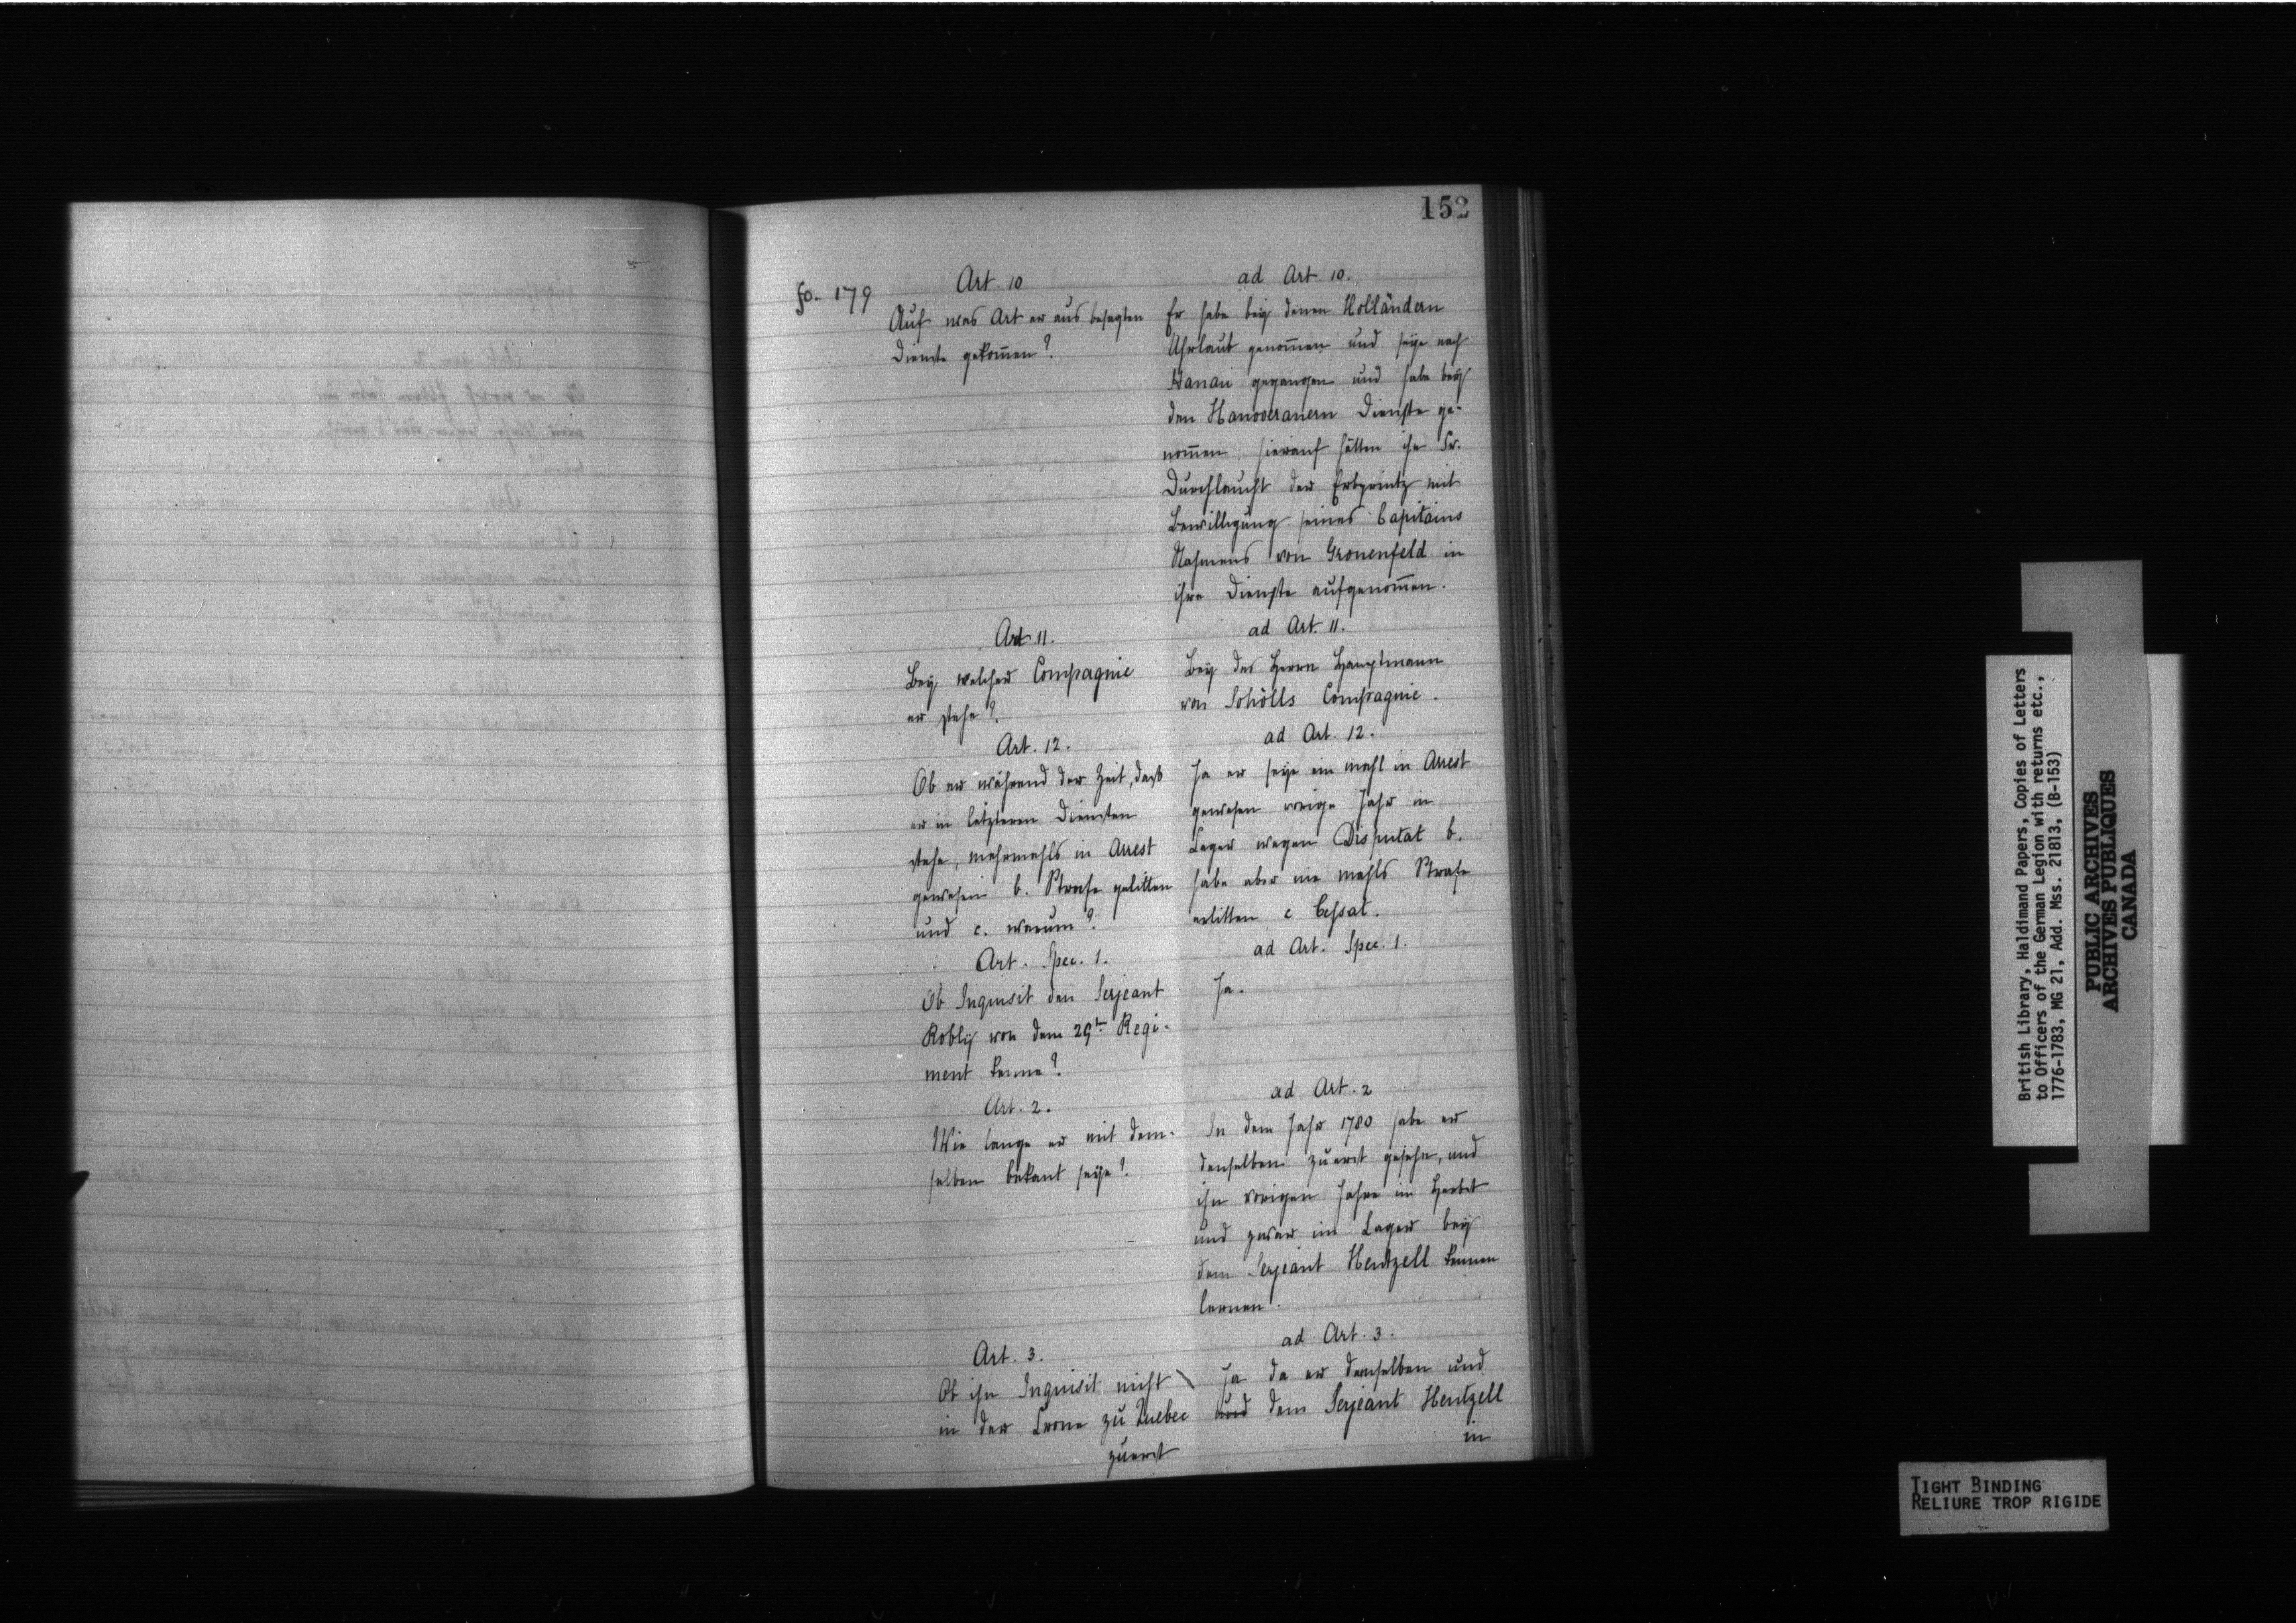 152
fo. 179
Art. 10
Auf was Art er aus besagten
Dienste gekom̄en?
ad Art. 10.
Er habe bey denen Holländern
Uhrlaub genom̄en und seye nach
Hanau gegangen und habe bey
den Hanoveranern Dienste ge-
nom̄en, hierauf hätten ihn Sr.
Durchlaucht der Erbprintz mit
Bewilligung seines Capitains
Nahmens von Gronenfeld in
ihre Dienste aufgenom̄en.
Art. 11.
Bey welcher Compagnie
er stehe?
ad Art. 11.
Bey des Herrn Hauptmann
von Schölls Compagnie.
Art. 12.
Ob er während der Zeit, dass
er in letzteren Diensten
stehe, mehrmahls in Arrest
gewesen b. Strafe gelitten
und c. warum?
ad Art. 12.
Ja er seye ein mahl in Arrest
gewesen vorige Jahr in
Lager wegen Disputat b.
habe aber nie mahls Strafe
erlitten c Cessat.
Art. Spec. 1.
Ob Inquisit den Serjeant
Robly von dem 29t. Regi-
ment kenne?
ad Art. Spec. 1.
Ja.
Art. 2.
Wie lange er mit dem-
selben bekant seye?
ad Art. 2
In dem Jahr 1780 habe er
denselben zuerst gesehn, und
ihn vorigen Jahre im Herbst
und zwar im Lager bey
dem Serjeant Hentzell kennen
lernen.
Art. 3.
Ob ihn Inquisit nicht
in der Crone zu Quebec
zuerst
ad Art. 3.
Ja da er denselben und
und dem Serjeant Hentzell
in
British Library, Haldimand Papers, Copies of Letters
to Officers of the German Legion with returns etc.,
1776-1783, MG 21, Add. Mss. 21813, (B-153)
PUBLIC ARCHIVES
ARCHIVES PUBLIQUES
CANADA
TIGHT BINDING
RELIURE TROP RIGIDE